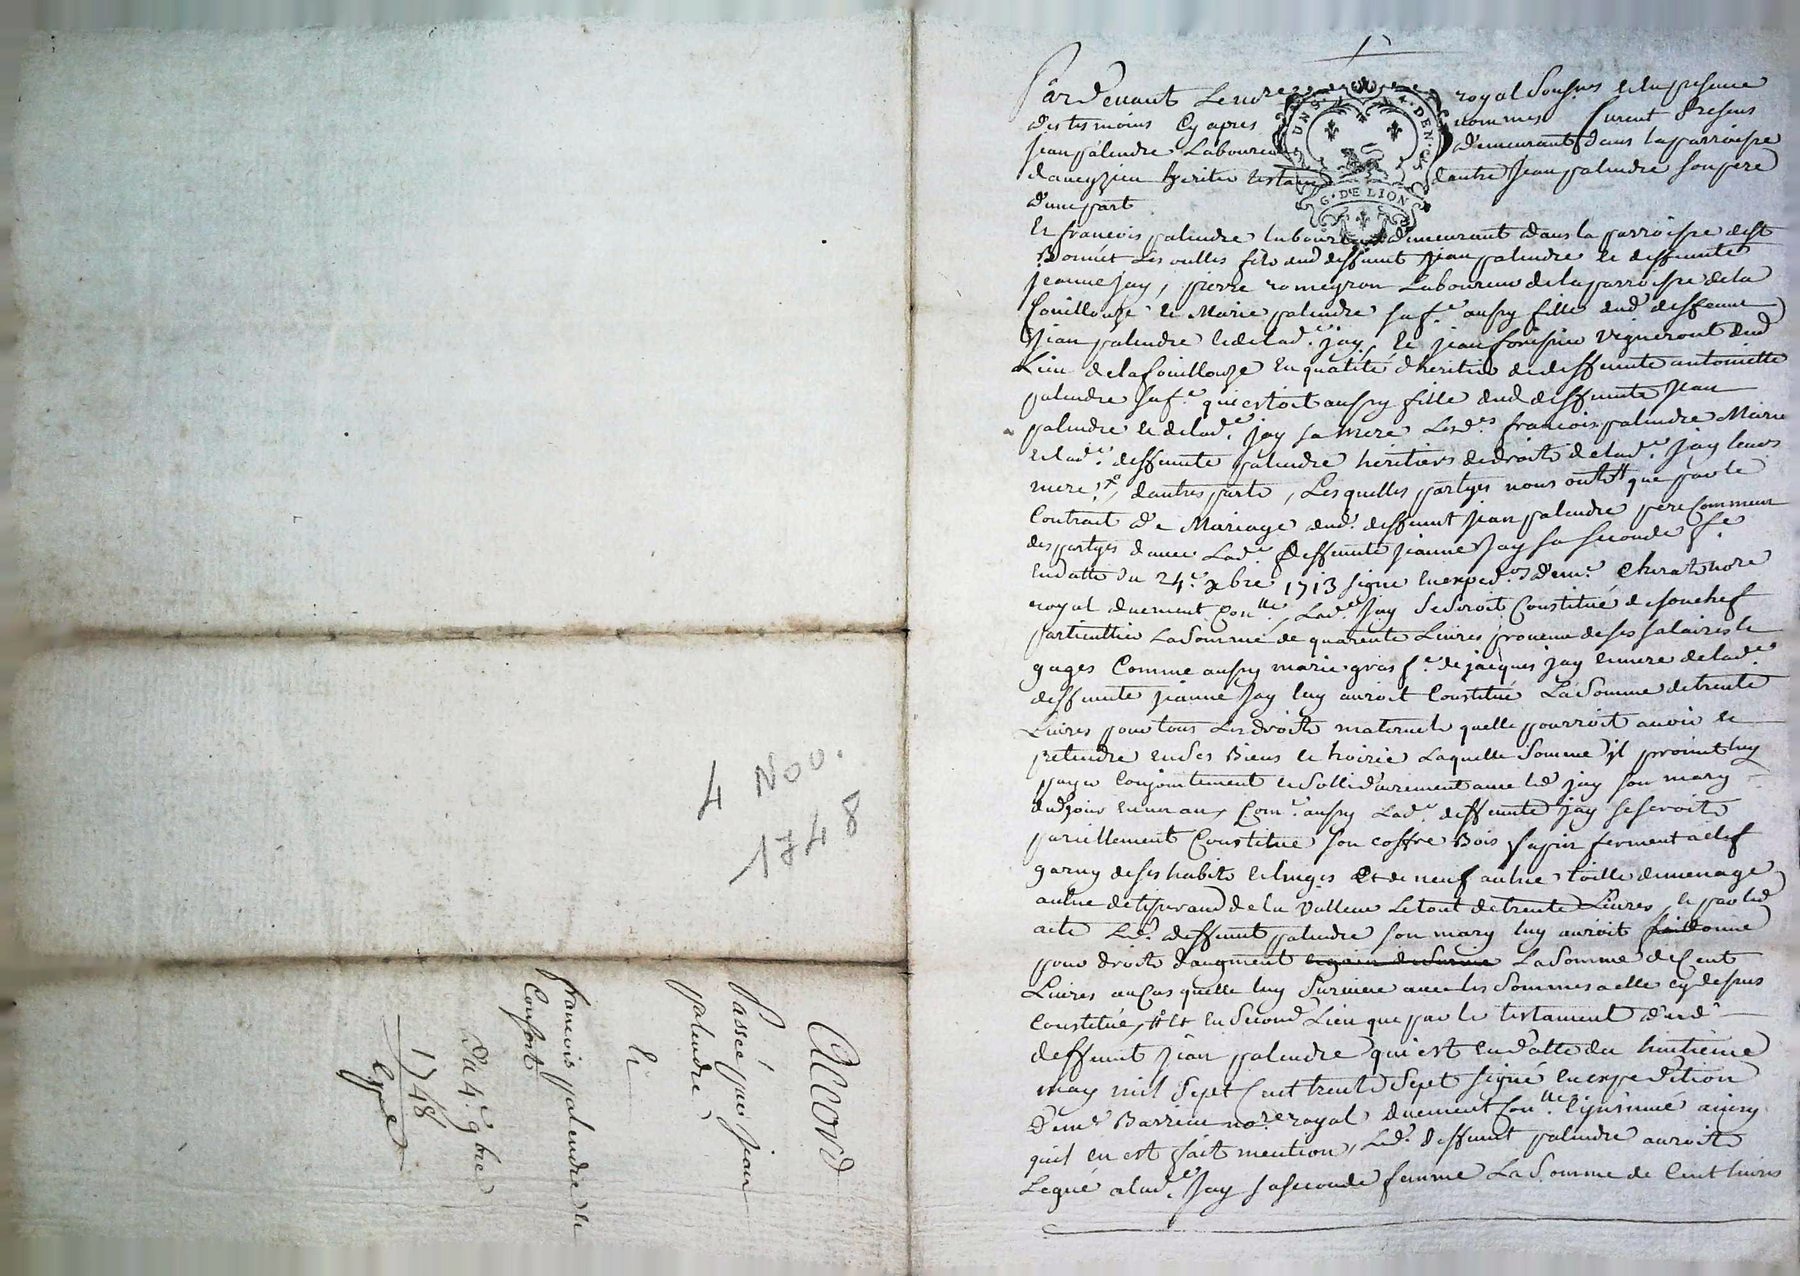 4 Nov.
1748
Accord
Passée par jean
palendre
Et
francois palendre et
Consort
Du 4e 9bre
1748
Expe
Pardevant Le nore royal Sousne et en presence
des tesmoins Cy apres nommes furent Presens
jean palendre Laboureur demeurant dans la parroisse
daveyzieu heritier testam dautre Jean palendre son pere
d'une part
Et francois palendre laboureur demeurant dans la parroisse de st
Bonnet Les oulles fils dud deffunt jean palendre et deffunte
jeanne jay, pierre romeyron Laboureur de la parroisse de la
fouillouze et Marie palendre sa fe aussy fille dud deffunt
jean palendre et de lade jay, et jean vigneront dud
Lieu de la fouillouze En qualité dheritier de deffunte antoinette
palendre sa fe qui estoit aussy fille dud deffunte Jean
palendre et de lade jay sa mere Lesds francois palendre Marie
et lade deffunte palendre heritiers de droits de lade Jay leurs
mere, d'autres parts, Lesquelles partyes nous ont dt que par le
Contract de Mariage dud. deffunt jean palendre pere Commun
des partyes d'avec Lade deffunte jeanne Jay sa seconde fe
En datte du 24e xbre 1713 signé En exped. de me Chirat nore
royal duement Conlle, Lade Jay Se seroit Constitué de son chef
particullier La Somme de quarente Livres provenu de ses salaires et
gages Comme aussy marie gras fe de jacques jay et mere de lade
deffunte jeanne Jay luy auroit Constitué La Somme de trente
Livres pour tous Les droits maternels quelle pourroit avoir et
pretendre En Ses Biens et hoirie Laquelle Somme il promit luy
payer Conjointement et Sollidairement avec led jay son mary
dud jour En un an, Come aussy Lade deffunte jay se seroit
pareillement Constitué son coffre Bois sapin fermant a clef
garny de ses habits et linges Et de neuf aulne toille de menage
aulne de tisserand de la Valleur Le tout de trente Livres, et par led
acte Led. deffunt palendre son mary luy auroit donné
pour droits d'augment La Somme de Cent
Livres au Cas quelle luy Survive avec les Sommes a elle cy dessus
Constitué, Et En Second Lieu que par le testament dud
deffunt jean palendre qui est En datte du huitieme
may mil Sept Cent trente Sept signé En expedition
de me Barrieu nore royal duement Conlle Ensinué ainsy
quil en est fait mention, Led. deffunt palendre auroit
Legué a lade Jay sa seconde femme La Somme de Cent livres